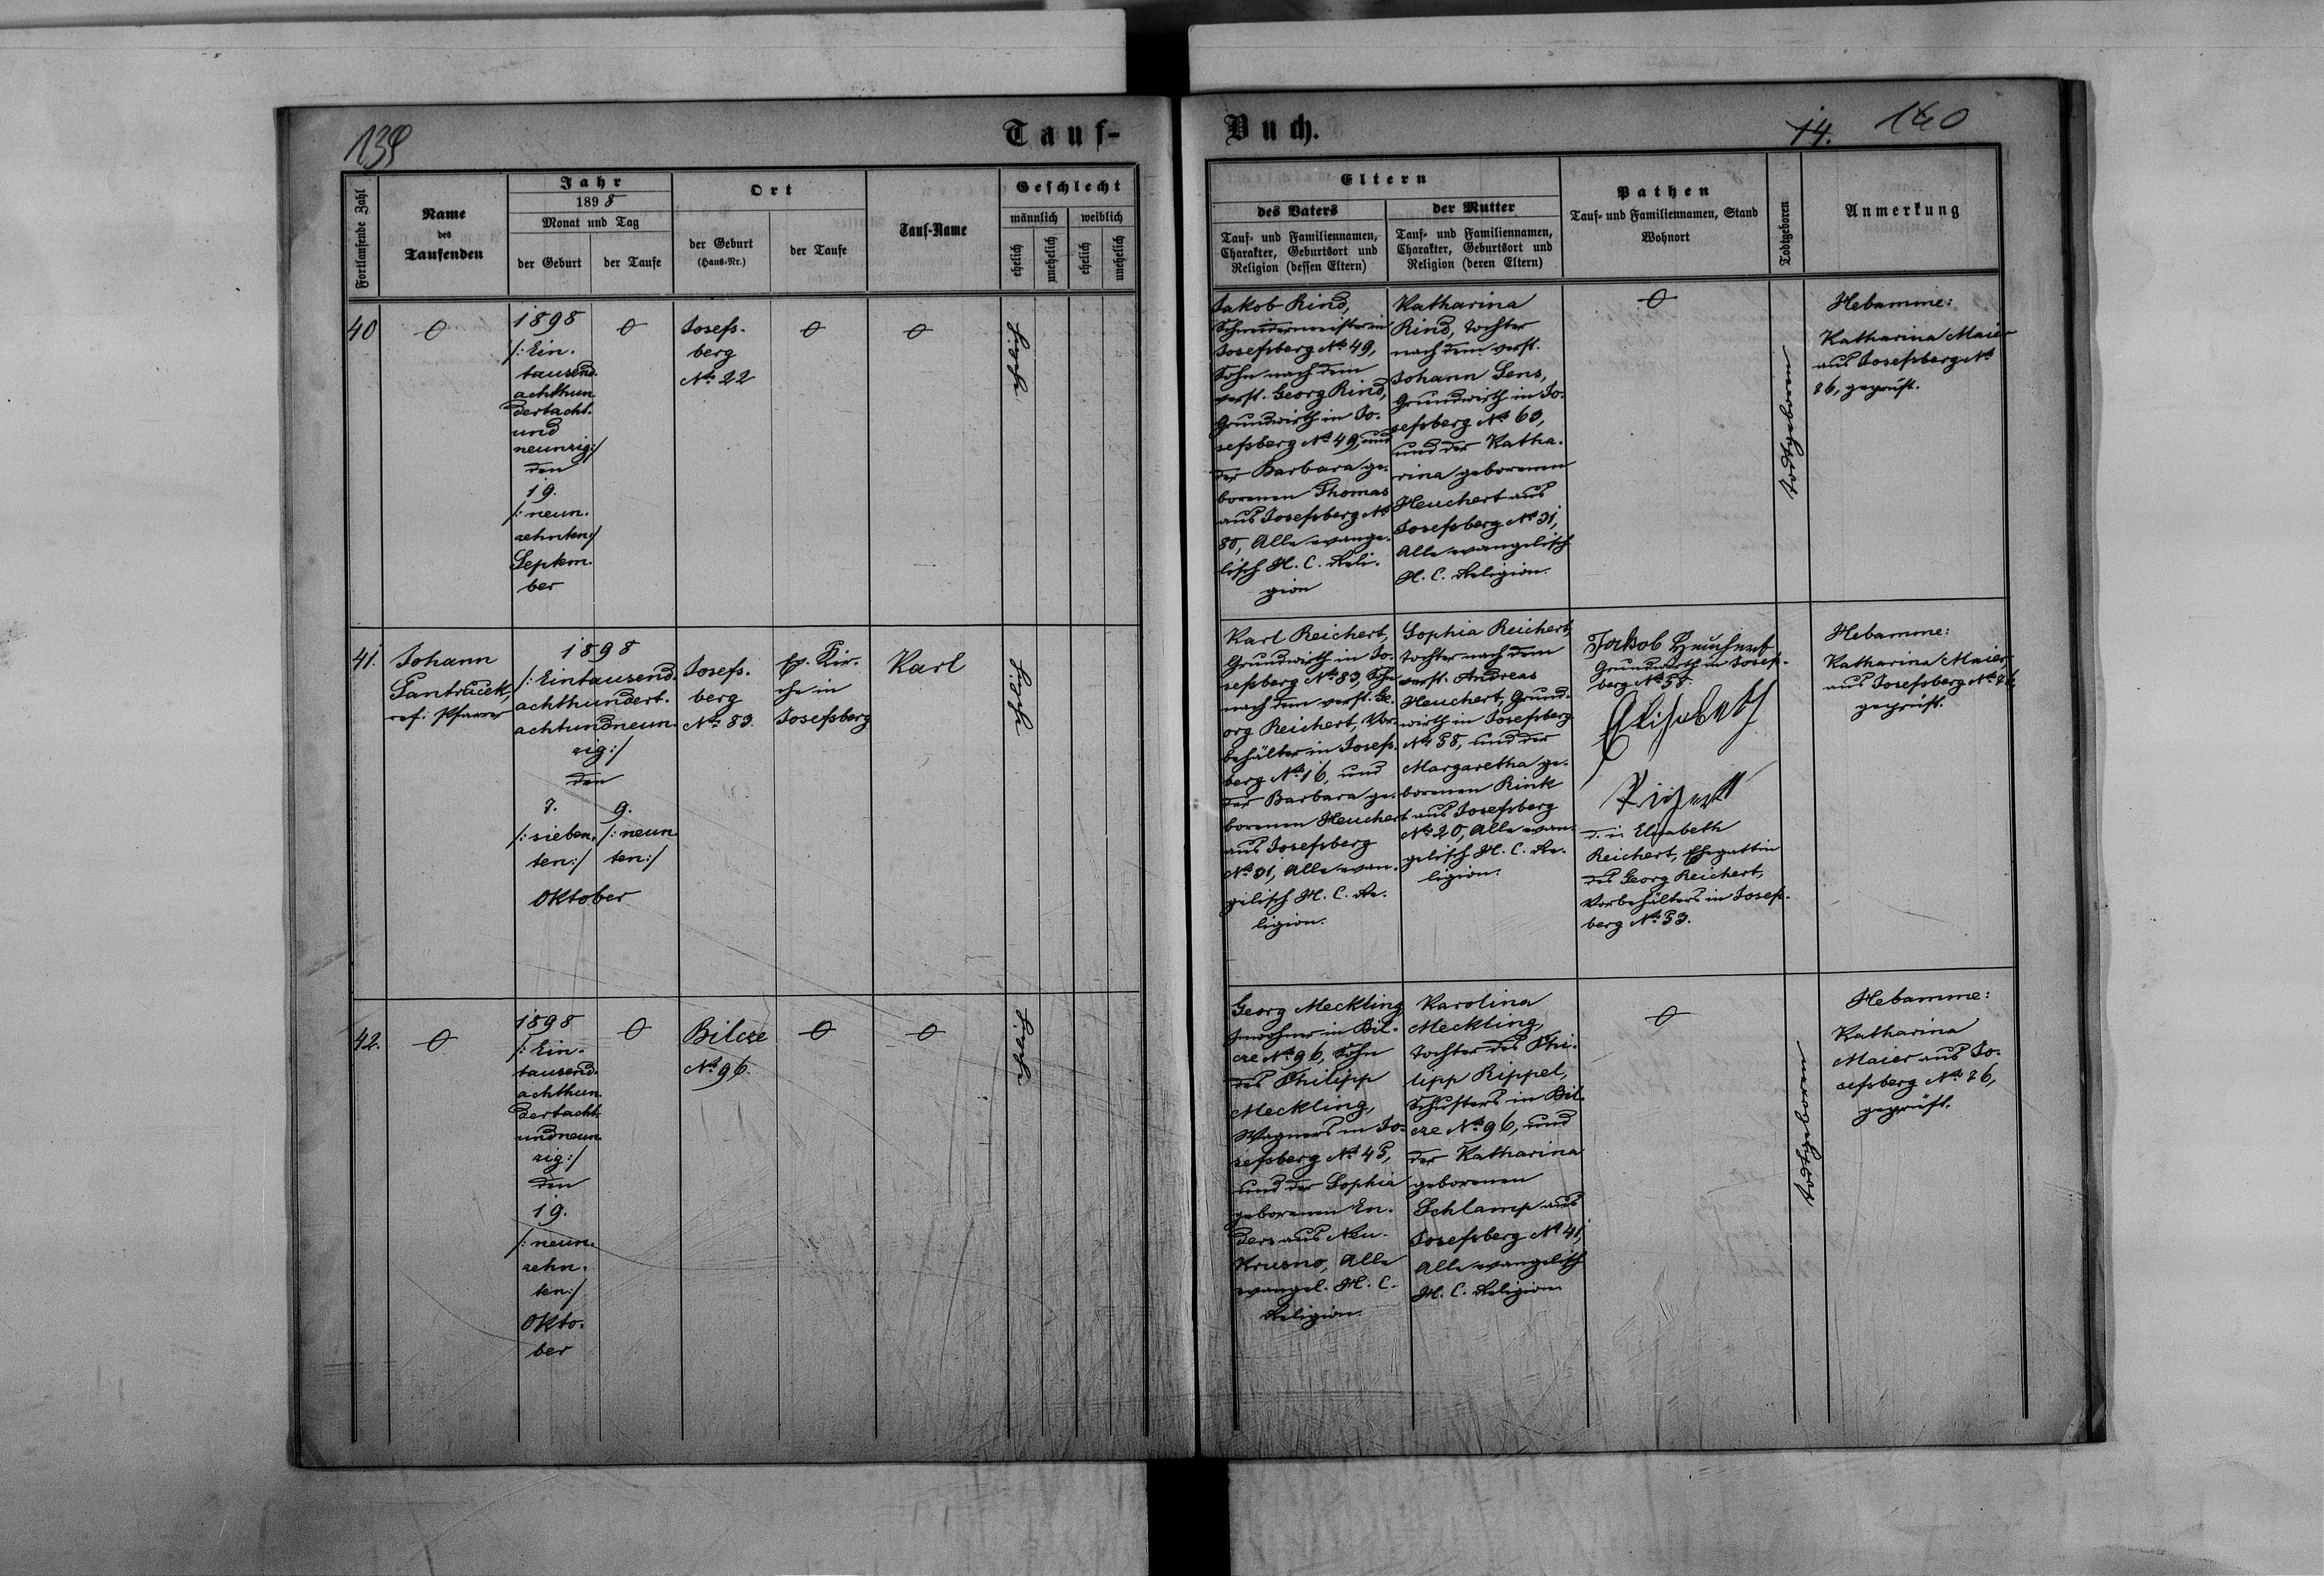 139
Tauf-
Buch.
14.
140
Fortlaufende Zahl
Name
des
Taufenden
Jahr
1898
Monat und Tag
der Geburt
der Taufe
Ort
der Geburt
(Haus-Nr.)
der Taufe
Tauf-Name
Geschlecht
männlich
weiblich
ehelich
unehelich
ehelich
unehelich
Eltern
des Vaters
Tauf- und Familiennamen,
Charakter, Geburtsort und
Religion (dessen Eltern)
der Mutter
Tauf- und Familiennamen,
Charakter, Geburtsort und
Religion (deren Eltern)
Pathen
Tauf- und Familiennamen, Stand
Wohnort
Todtgeboren
Anmerkung
40
1898
/: Ein-
tausend-
achthun
dertacht-
und
neunzig:/
den
19.
/: neun-
zehnten:/
Septem-
ber
Josefs-
berg
No. 22
ehelich
Jakob Rind,
Schneidermeister in
Josefsberg No 49,
Sohn nach dem
verst. Georg Rind,
Grundwirth in Jo-
sefsberg No 49, und
der Barbara ge-
borenen Thomas
aus Josefsberg No
80, Alle evange-
lisch H. C. Reli-
gion
Katharina
Rind, Tochter
nach dem verst.
Johann Sens,
Grundwirth in Jo-
sefsberg No 63,
und der Katha-
rina geborenen
Heuchert aus
Josefsberg No 31,
Alle evangelisch
H. C. Religion.
todtgeboren
Hebamme:
Katharina Maier
aus Josefsberg No
26, geprüft.
41.
Johann
Fantrucek,
ref. Pfarrer
1898
/: Eintausend-
achthundert-
achtundneun-
zig:/
den
7.
/: sieben-
ten:/
9.
/: neun-
ten:/
Oktober
Josefs-
berg
No. 83.
Ev. Kir-
che in
Josefsberg
Karl
ehelich
Karl Reichert,
Grundwirth in Jo-
sefsberg No 83, Sohn
nach dem verst. Ge-
org Reichert, Vor-
behälter in Josefs-
berg No 16, und
der Barbara ge-
borenen Heuchert
aus Josefsberg
No 31, Alle evan-
gelisch H. C. Re-
ligion.
Sophia Reichert,
Tochter nach dem
verst. Andreas
Heuchert, Grund-
wirth in Josefsberg
No 58, und der
Margaretha ge-
borenen Rink
aus Josefsberg
No 20, Alle evan-
gelisch H. C. Re-
ligion.
Jakob Heuchert
Grundwirth in Josefs-
berg No 58.
Elisabeth
d. i. Elisabeth
Reichert, Ehegattin
des Georg Reichert,
Vorbehälters in Josefs-
berg No 53.
Hebamme:
Katharina Maier,
aus Josefsberg No 26,
geprüft.
42.
1898
/: Ein-
tausend-
achthun-
dertacht-
undneun-
zig:/
den
19.
/: neun-
zehn-
ten:/
Okto-
ber
Bilcze
No 96.
ehelich
Georg Meckling,
Inwohner in Bil-
cze No 96, Sohn
des Philipp
Meckling,
Wagners in Jo-
sefsberg No 45,
und der Sophia
geborenen En-
ders aus Neu-
Kruzno, Alle
evangel. H. C.
Religion.
Karolina
Meckling,
Tochter des Phi-
lipp Rippel,
Schusters in Bil-
cze No 96, und
der Katharina
geborenen
Schlamp aus
Josefsberg No 41,
Alle evangelisch
H. C. Religion
todtgeboren
Hebamme:
Katharina
Maier aus Jo-
sefsberg No 26,
geprüft.